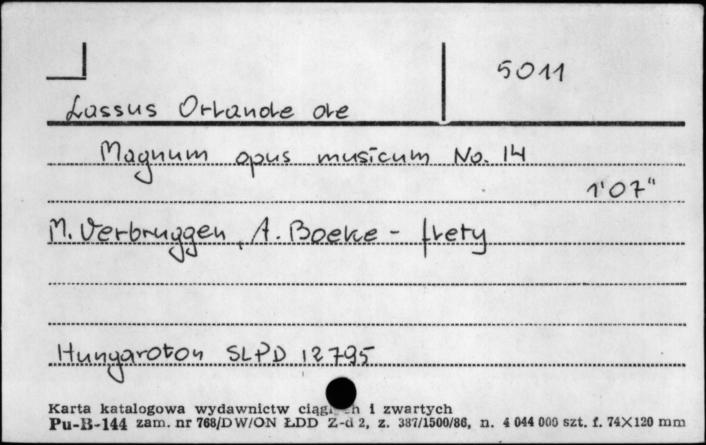 5011
Lassus Orlande de
Magnum opus musicum No. 14
1'07"
M. Verbruggen, A. Boeke - flety
Hungaroton SLPD 12795
Karta katalogowa wydawnictw i zwartych
Pu-B-144 zam. nr 768/DW/ON ŁDD Z-d 2, z. 387/1500/86, n. 4 044 000 szt. f. 74×120 mm